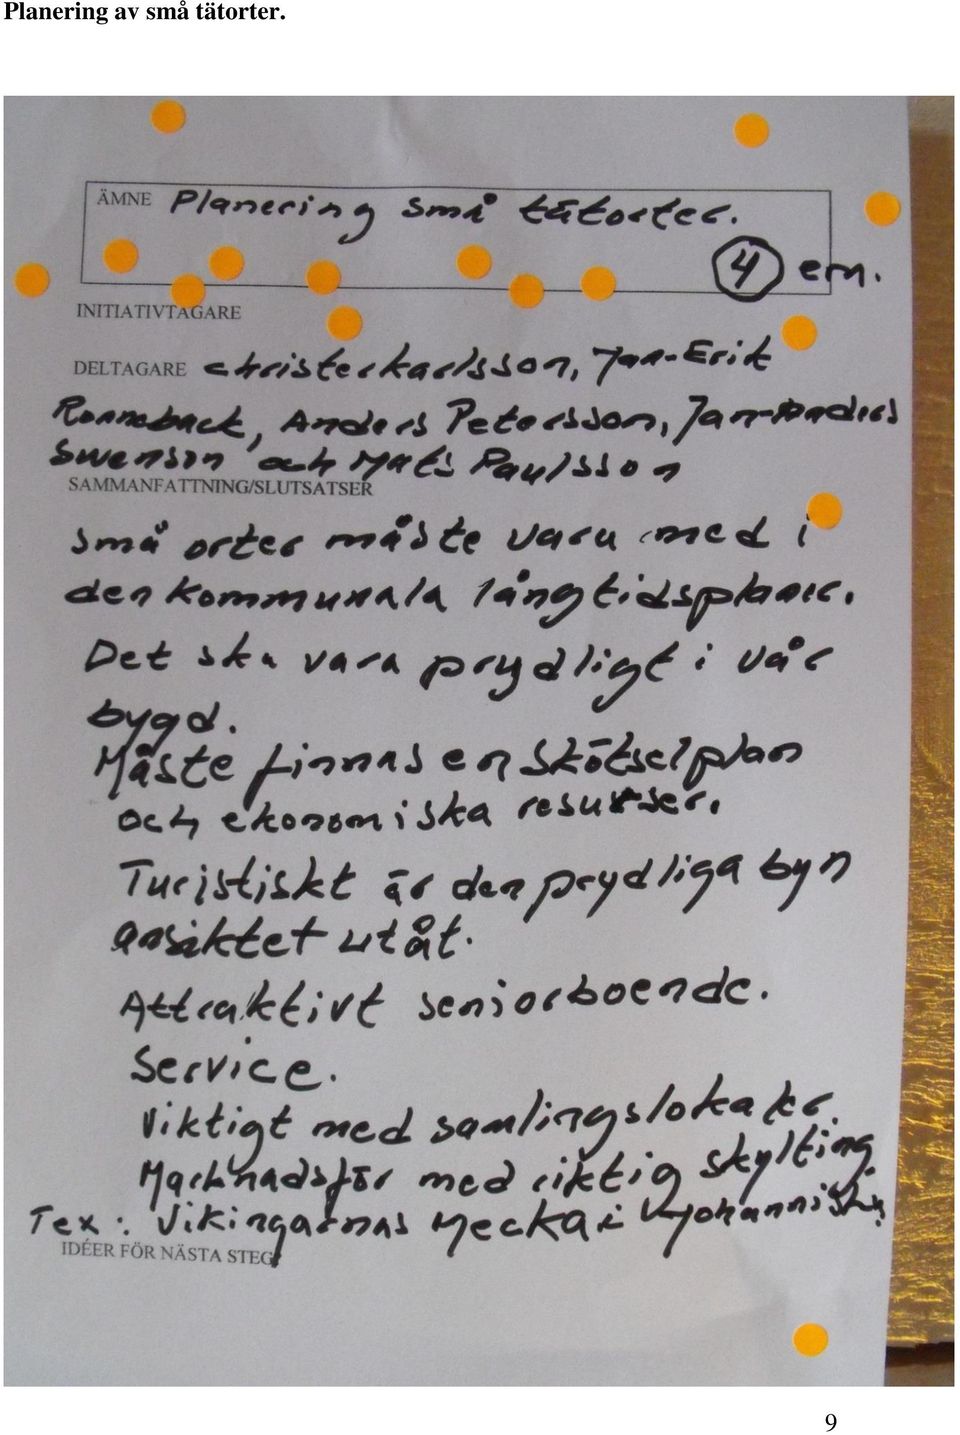 Planering av små tätorter.
ÄMNE Planering små tätorter.
4 em.
INITIATIVTAGARE
DELTAGARE Christer karlsson, Jan-Erik
Ronneback, Anders Petersson, Jan-Anders
Swenson och Mats Paulsson
SAMMANFATTNING/SLUTSATSER
små orter måste vara med i
den kommunala långtidsplaner.
Det ska vara prydligt i vår
bygd.
Måste finnas en skötselplan
och ekonomiska resurser.
Turistiskt är den prydliga byn
ansiktet utåt.
Attraktivt seniorboende.
Service.
Viktigt med samlingslokaler.
Marknadsför med riktig skylting
Tex: Vikingarnas Mecka i
IDÉER FÖR NÄSTA STEG
9